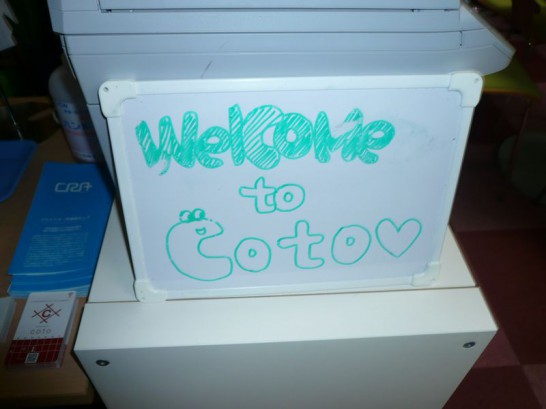 Welcome
to
Coto♡
CRA
C
coto